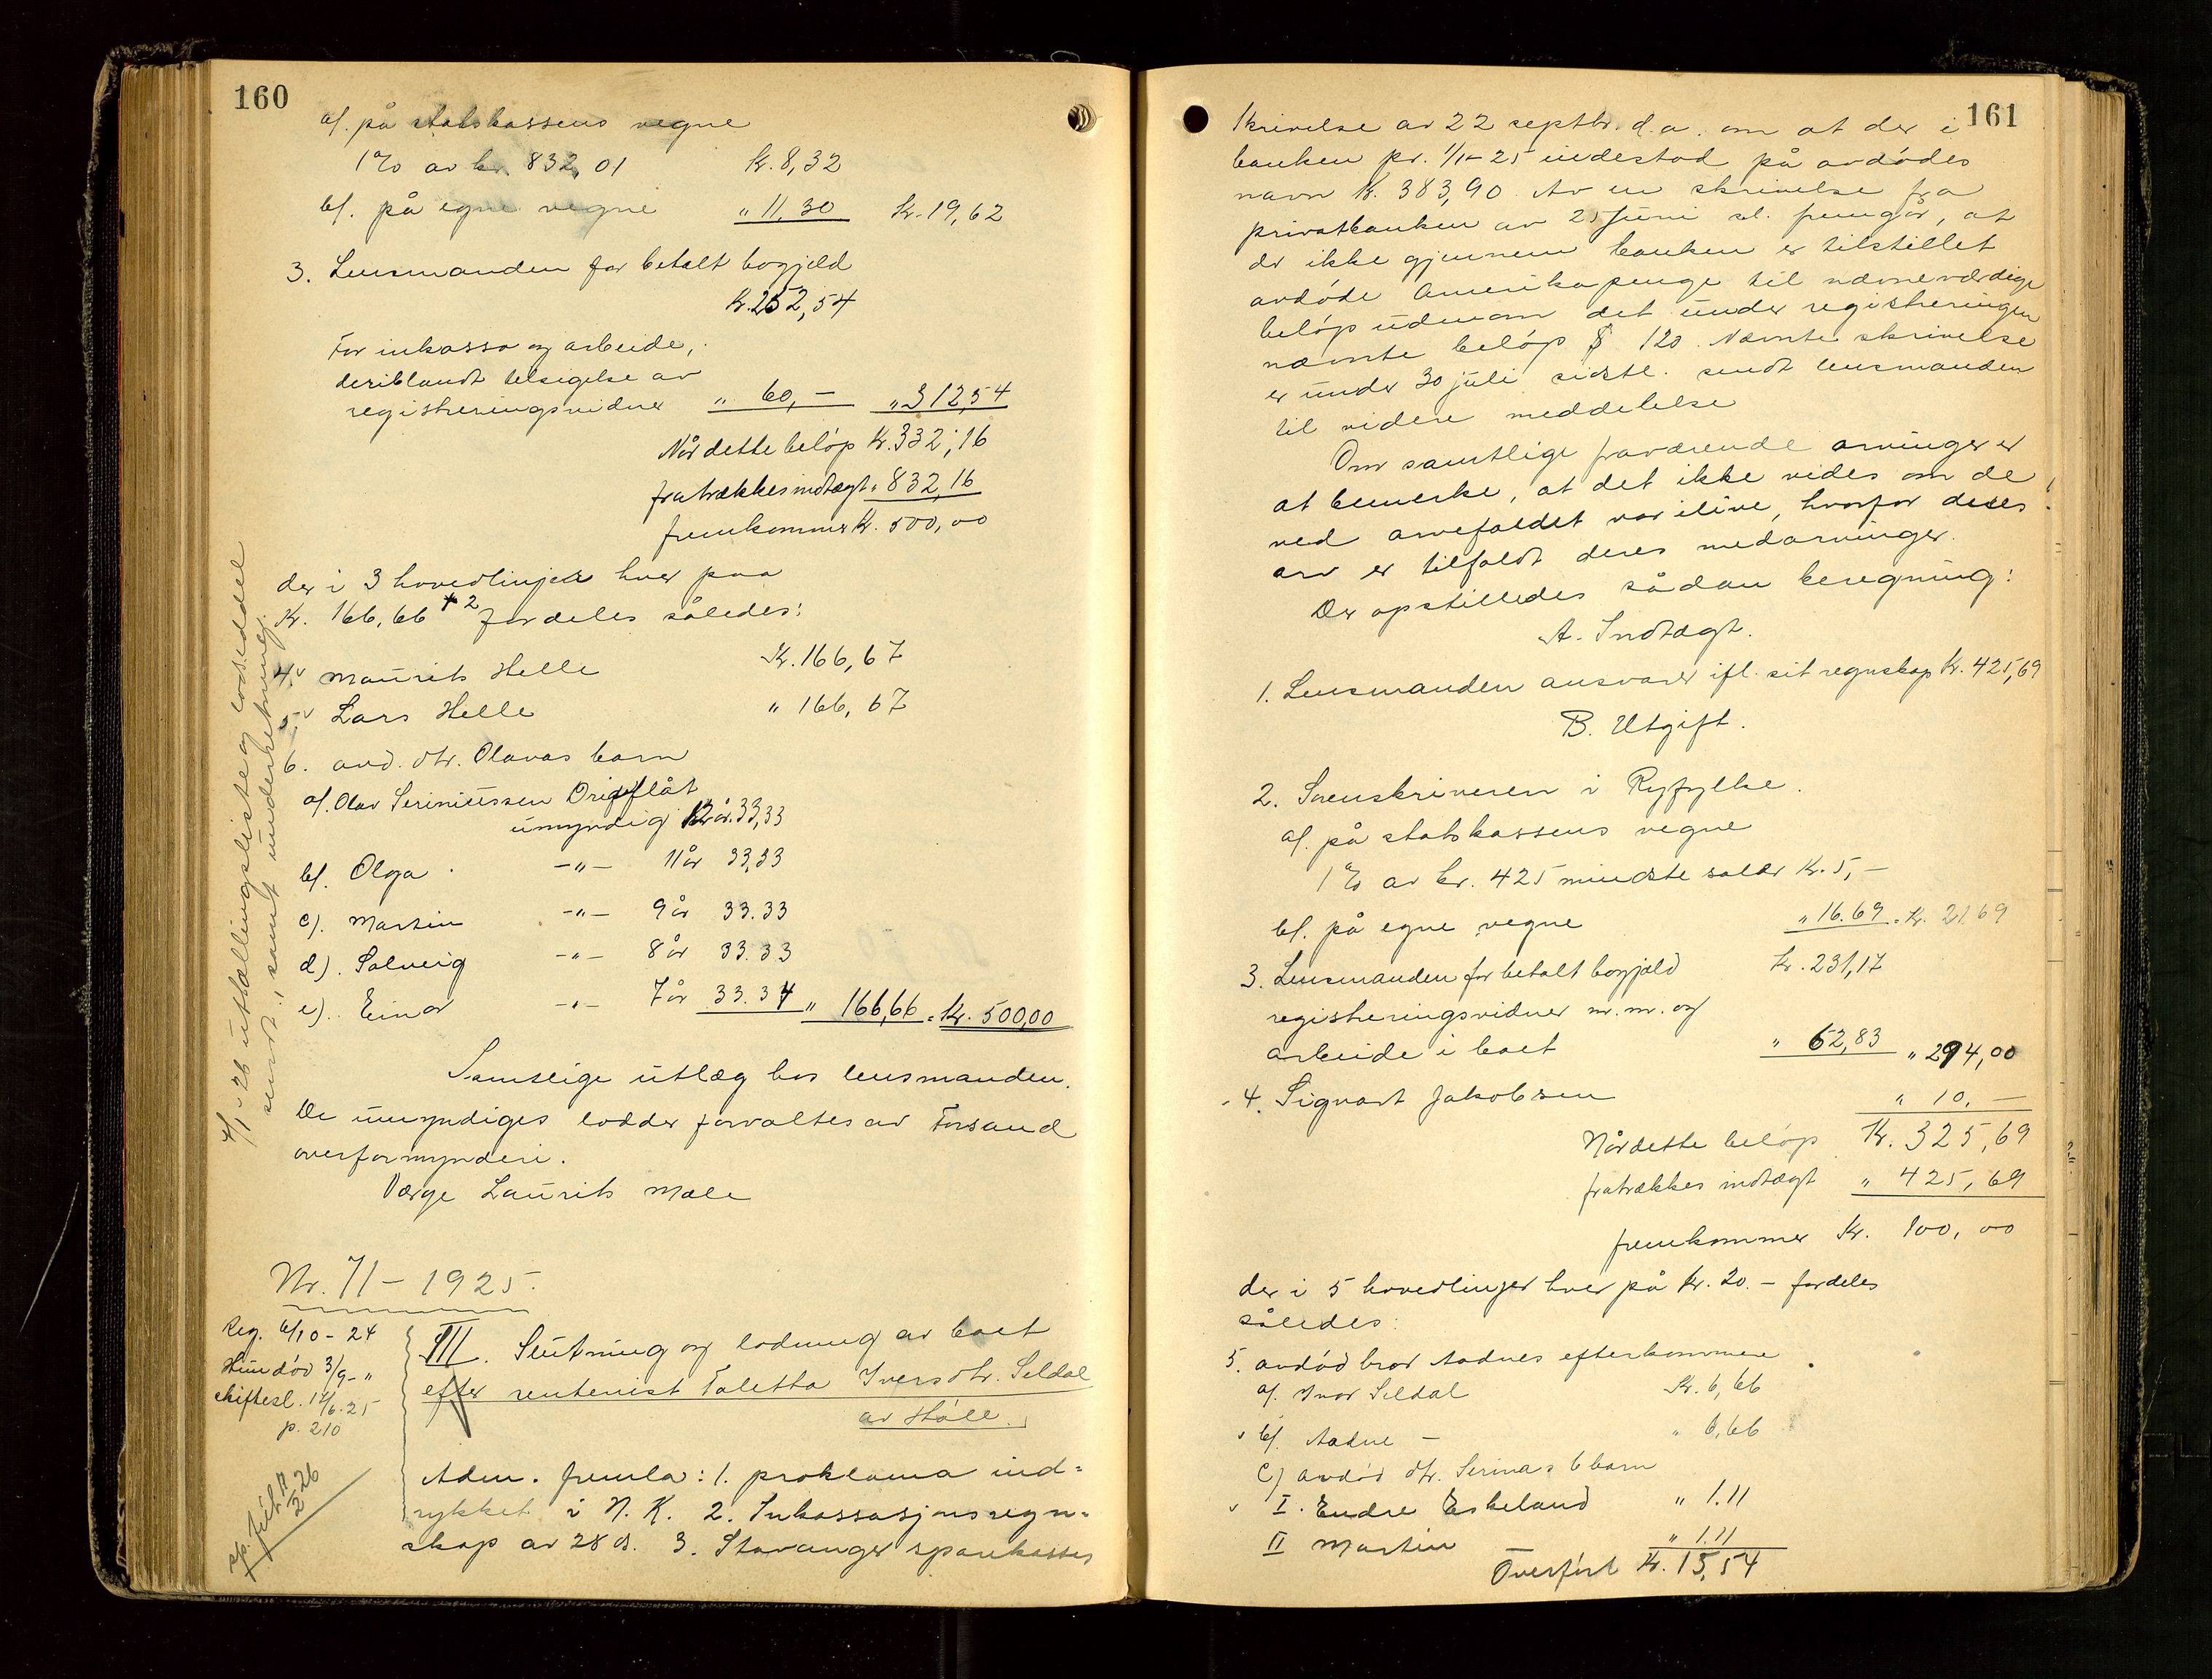 160
a/. på statskassens vegne
1% av kr. 832,01 Kr. 8,32
b/. på egne vegne " 11,30 Kr. 19,62
3. Lensmanden for betalt bogjæld
Kr. 252,54
For inkasso og arbeide,
deriblandt tilsigelse av
registreringsvidner " 60,— " 312,54
Når dette beløp Kr. 332,16
fratrækkes indtægt " 832,16
fremkommer Kr. 500,00
der i 3 hovedlinjer hver paa
Kr. 166,66 + 2 fordeles således:
4. Maurits Helle Kr. 166,67
5. Lars Helle " 166,67
6. avd. dtr. Olavas barn
a/. Olav Seriniussen
umyndig 12 år. 33,33
b/. Olga -"- 11 år 33,33
c). Martin -"- 9 år 33.33
d). Solveig -"- 8 år 33.33
e). Einar -"- 7 år 33.34 " 166,66 = Kr. 500,00
Samtlige utlæg hos lensmanden.
De umyndiges lodder forvaltes av Forsand
overformynderi.
Værge Laurits Mæle
7/1-26 utstællingsliste og lodseddel
sendt, samt underretning.
Nr. 71 - 1925.
Reg. 6/10-24
Hun død 3/9-"
skiftesl. 17/6.25
p. 210
III. Slutning og lodning av boet
efter rentenist Taletta Iversdtr. Seldal
av Høle.
Adm. fremla: 1. proklama ind=
rykket i N. K. 2. Inkassasjonsregn=
skap av 28 ds. 3. Stavanger sparekasses
161
skrivelse av 22 septbr. d.a. om at der i
banken pr. 1/1-25 indestod på avdødes
navn Kr. 383,90. Av en skrivelse fra
privatbanken av 25 juni sl. fremgår, at
der ikke gjennem banken er tilstillet
avdøde Amerikapenge til nævneværdige
beløp udenom det under registreringen
nævnte beløp $ 120. Nævnte skrivelse
er under 30 juli sidstl. sendt lensmanden
til videre meddelelse
Om samtlige fraværende arvinger er
at bemerke, at det ikke vides om de
ved arvefaldet var ilive, hvorfor deres
arv er tilfaldt deres medarvinger.
Der opstilledes sådan beregning:
A. Indtægt.
1. Lensmanden ansvarer ifl. sit regnskap Kr. 425,69
B. Utgift.
2. Sorenskriveren i Ryfylke.
a/. på statskassens vegne
1% av kr. 425 mindste salær Kr. 5,—
b/. på egne vegne " 16.69 = Kr. 21.69
3. Lensmanden for betalt bogjæld Kr. 231,17
registreringsvidner m.m. og
arbeide i boet " 62,83 " 294,00
4. Sigvart Jakobsen " 10,—
Når dette beløp Kr. 325,69
fratrækkes indtægt " 425,69
fremkommer Kr. 100,00
der i 5 hovedlinjer hver på Kr. 20.- fordeles
således:
5. avdød bror Aadnes efterkommere
a/. Ivar Seldal Kr. 6,66
b/. Aadne — " 6,66
c) avdød dtr. Serinas 6 barn
I. Endre Eskeland " 1.11
II Martin " 1.11
Overført Kr. 15,54